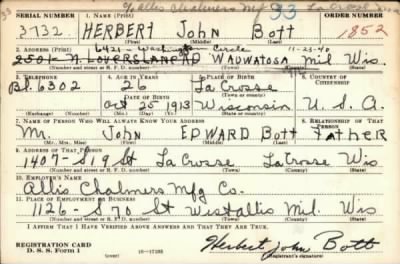 % Allis Chalmers Mfg 33 La Crosse
SERIAL NUMBER 1. NAME (Print) ORDER NUMBER
3732 HERBERT John Bott 1852
(First) (Middle) (Last)
6421 - Washington Circle 11-23-40
2. ADDRESS (Print)
2501 - N. LOVERSLANE RD WAUWATOSA Mil Wis
(Number and street or R. F. D. number) (Town) (County) (State)
3. TELEPHONE 4. AGE IN YEARS 5. PLACE OF BIRTH 6. COUNTRY OF CITIZENSHIP
Bl. 6302 26 La Crosse
DATE OF BIRTH
Oct 25 1913 Wisconsin U. S. A.
(Exchange) (Number) (Mo.) (Day) (Yr.) (State or country)
7. NAME OF PERSON WHO WILL ALWAYS KNOW YOUR ADDRESS 8. RELATIONSHIP OF THAT PERSON
Mr. John EDWARD Bott FATHER
(Mr., Mrs., Miss) (First) (Middle) (Last)
9. ADDRESS OF THAT PERSON
1407 - S 19 St La Crosse LaCrosse Wis
(Number and street or R. F. D. number) (Town) (County) (State)
10. EMPLOYER'S NAME
Allis Chalmers Mfg Co.
11. PLACE OF EMPLOYMENT OR BUSINESS
1126 - S 70 St West allis Mil. Wis
(Number and street or R. F. D. number) (Town) (County) (State)
I AFFIRM THAT I HAVE VERIFIED ABOVE ANSWERS AND THAT THEY ARE TRUE.
REGISTRATION CARD
D. S. S. Form 1 (over) 16-17105 Herbert John Bott
(Registrant's signature)